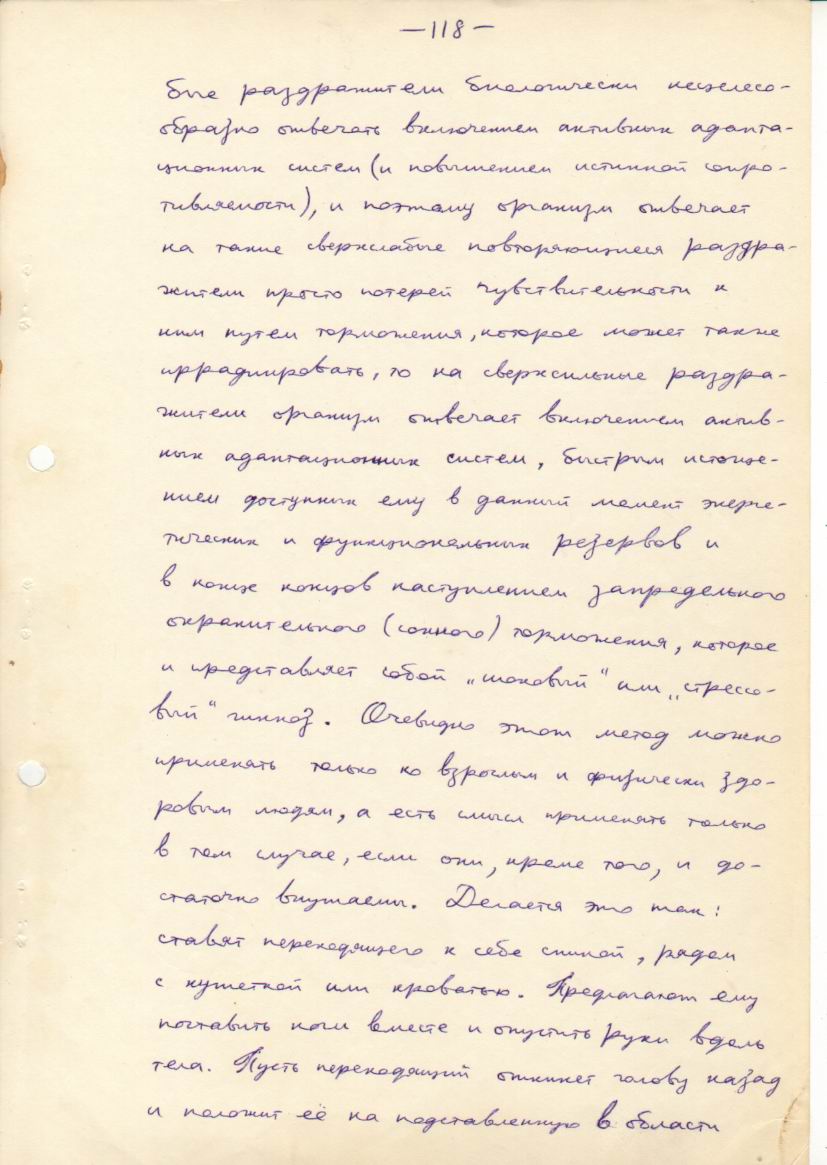 —118—
бые раздражители биологически нецелесо-
образно отвечать включением активных адапта-
ционных систем (и повышением истинной сопро-
тивляемости), и поэтому организм отвечает
на такие сверхслабые повторяющиеся раздра-
жители просто потерей чувствительности к
ним путем торможения, которое может также
иррадиировать, то на сверхсильные раздра-
жители организм отвечает включением актив-
ных адаптационных систем, быстрым истоще-
нием доступных ему в данный момент энерге-
тических и функциональных резервов и
в конце концов наступлением запредельного
охранительного (сонного) торможения, которое
и представляет собой „шоковый“ или „стрессо-
вый“ гипноз. Очевидно этот метод можно
применять только ко взрослым и физически здо-
ровым людям, а есть смысл применять только
в том случае, если они, кроме того, и до-
статочно внушаемы. Делается это так:
ставят переходящего к себе спиной, рядом
с кушеткой или кроватью. Предлагают ему
поставить ноги вместе и опустить руки вдоль
тела. Пусть переходящий откинет голову назад
и положит её на подставленную в области